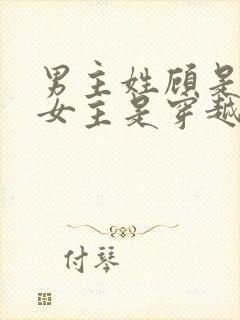 男主姓顾是
女主是穿越
付琴